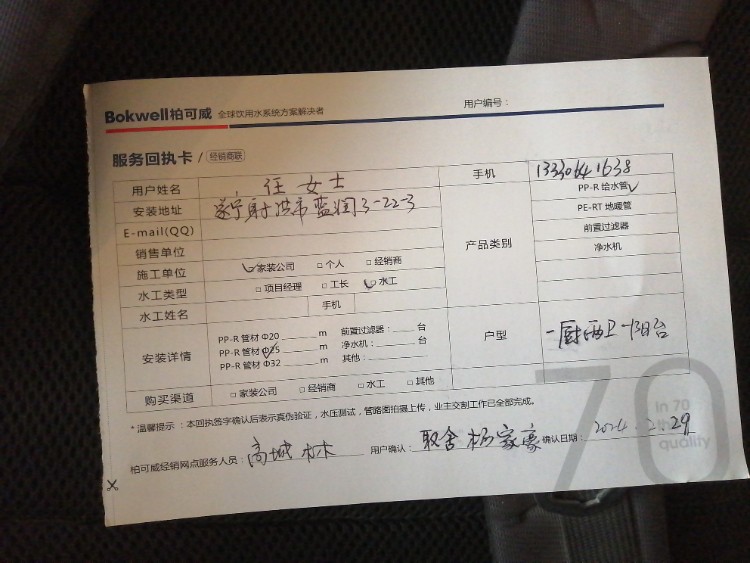 Bokwell柏可威 全球饮用水系统方案解决者
用户编号：
服务回执卡 / 经销商联
用户姓名 任女士 手机
安装地址 遂宁射洪市蓝润3-22-3
E-mail(QQ)
销售单位
产品类别
PP-R 给水管 ✓
PE-RT 地暖管
前置过滤器
净水机
施工单位 ✓家装公司 □个人 □经销商
水工类型 □项目经理 □工长 ✓水工
水工姓名 手机
安装详情
PP-R 管材 Φ20 m 前置过滤器： 台
PP-R 管材 Φ25 m 净水机： 台
PP-R 管材 Φ32 m 其他：
户型 一厨两卫一阳台
购买渠道 □家装公司 □经销商 □水工 □其他
* 温馨提示：本回执签字确认后表示真伪验证，水压测试，管路图拍摄上传，业主交割工作已全部完成。
70
In 70
quality
柏可威经销网点服务人员： 高城林 用户确认： 取舍 杨家豪 确认日期： 2024.2.29